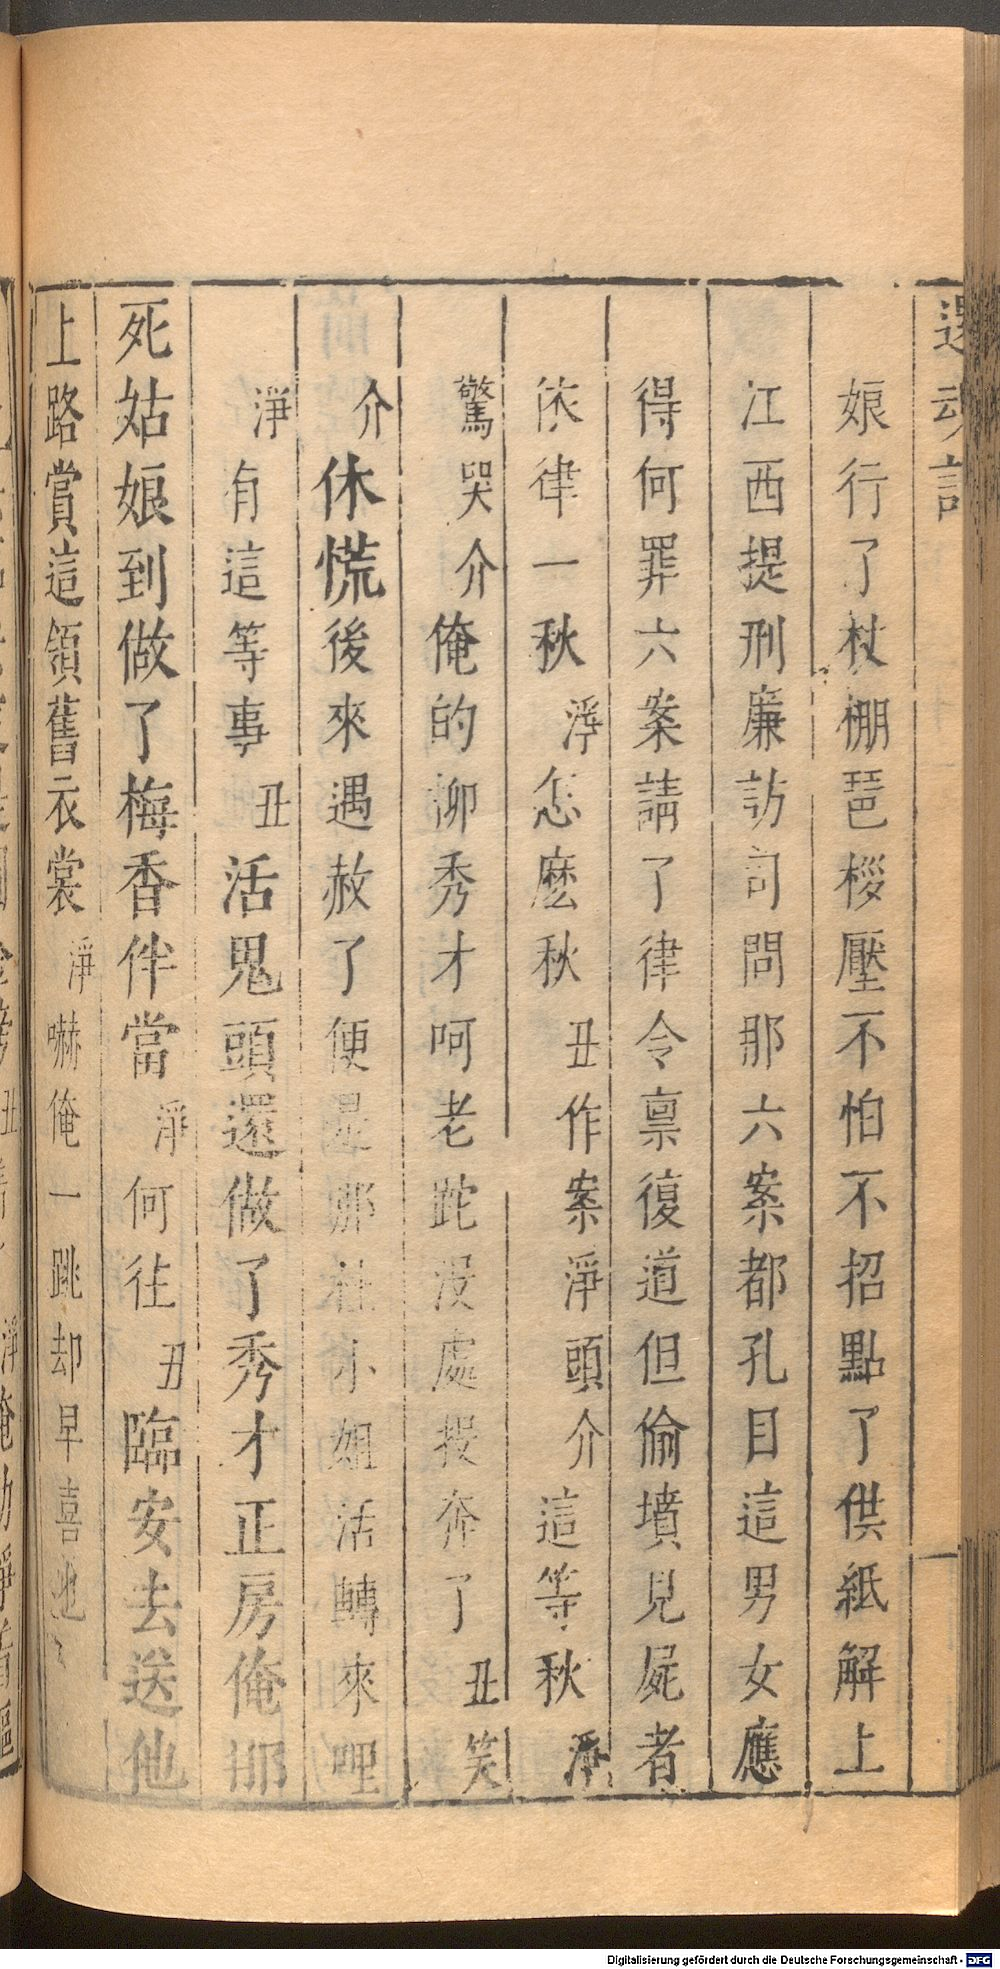 還魂記
娘行了杖棚琶椤壓不怕不招點了供紙解上
江西提刑廉訪司問那六案都孔目這男女應
得何罪六案請了律令禀復道但偷墳見屍者
依律一秋淨怎麽秋丑作案淨頭介這等秋淨
驚哭介俺的柳秀才呵老跎没處投奔了丑笑
介休慌後來遇赦了便是那杜小姐活轉來哩
淨有這等事丑活鬼頭還做了秀才正房俺那
死姑娘到做了梅香伴當淨何往丑臨安去送他
上路賞這領舊衣裳淨嚇俺一跳却早喜也
Digitalisierung gefördert durch die Deutsche Forschungsgemeinschaft - DFG